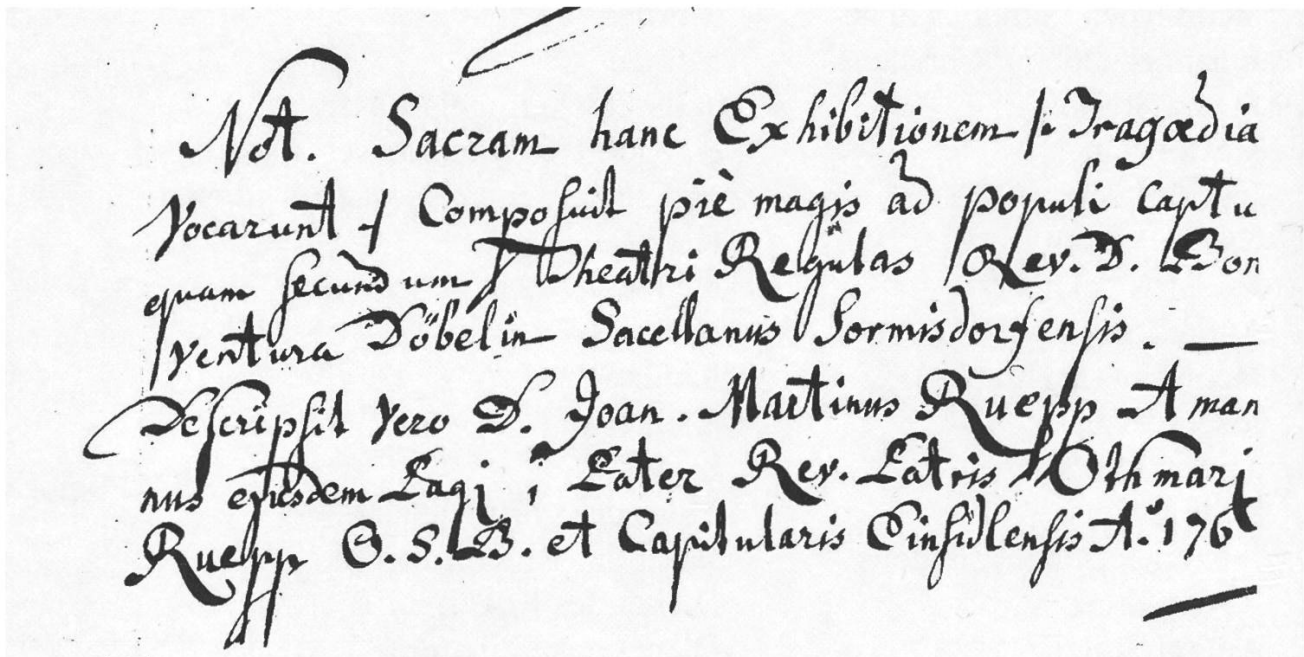 Not. Sacram hanc Exhibitionem /: Tragœdia
vocarunt / Composuit piè magis ad populi captu
quam secundum Theatri Regulas Rev. D. Bon
ventura Döbelin Sacellanus Sormisdorfensis.
Descripsit vero D. Joan. Martinus Ruepp Aman
nus ejusdem Pagi, Pater Rev. Patris Othmari
Ruepp O. S. B. et Capitularis Einsidlensis Aº. 176